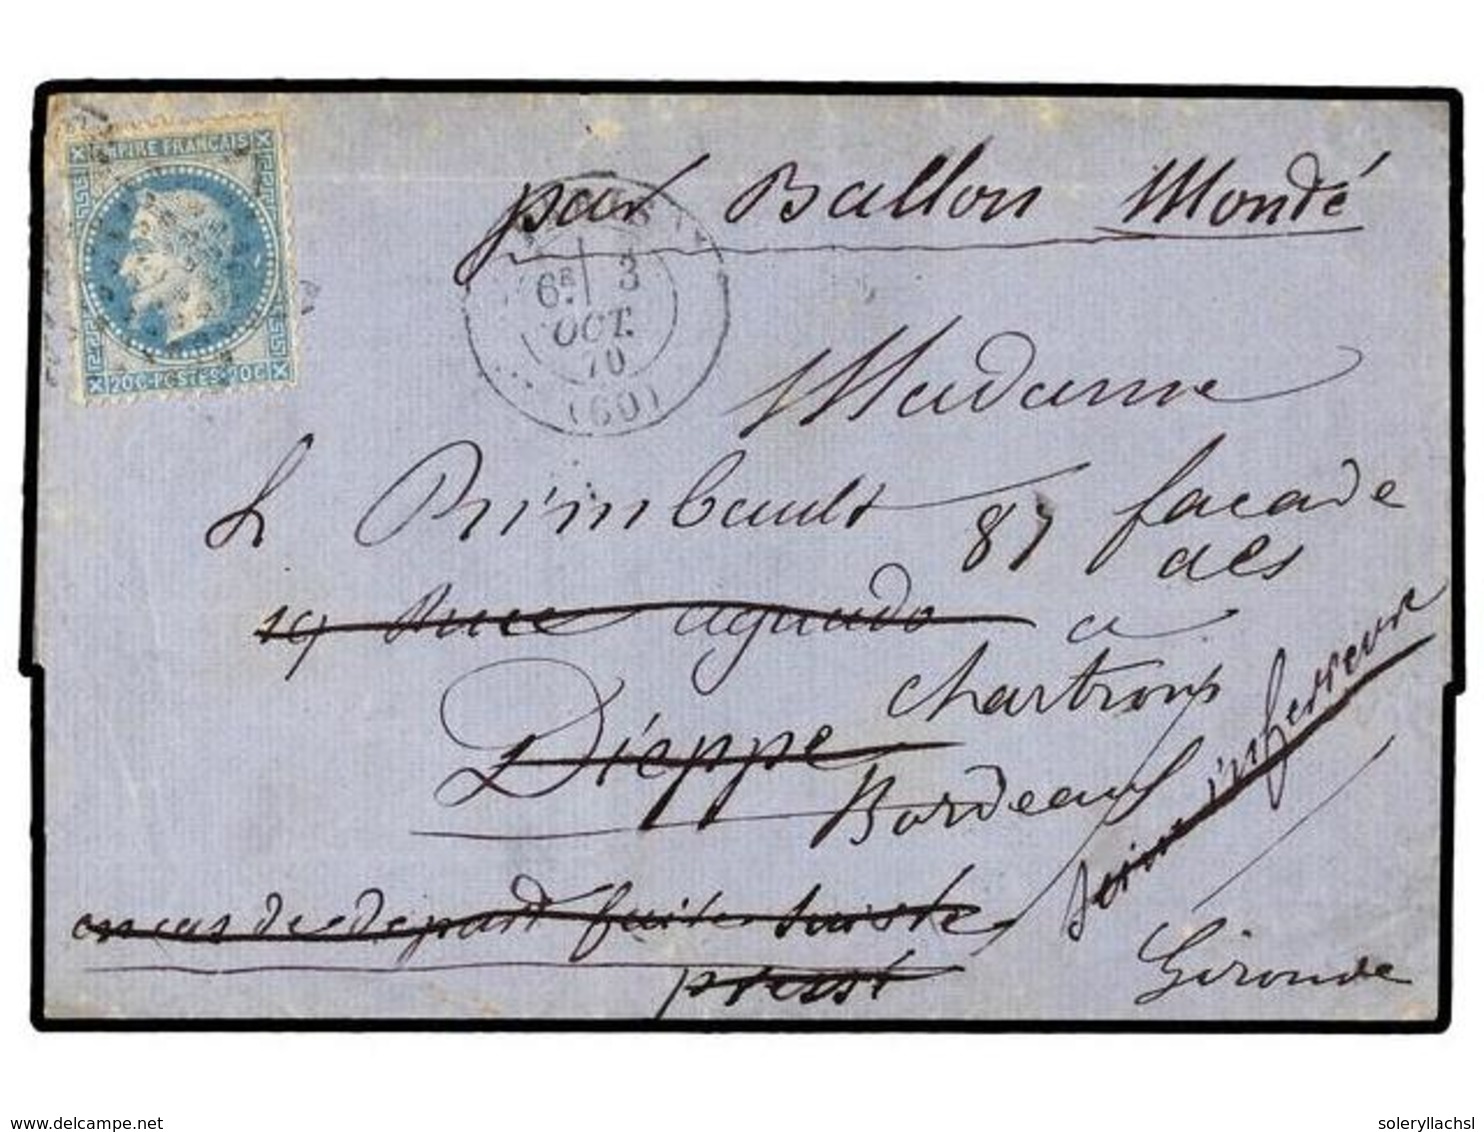 EMPIRE FRANÇAIS
20 C. POSTES 20 C.
par Ballon Mondé
6E 3
OCT.
70
(60)
Madame
L Rimbault 87 façade
des
19 rue aguado a
Chartrons
Dieppe
Bordeaux
Seine inferreure
en cas de depart faite suivre
presst
Gironde
www.delcampe.net
soleryllachsl